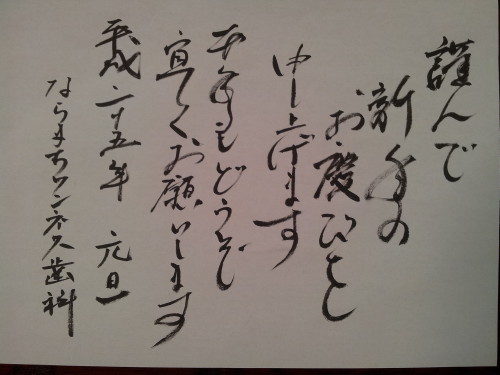 謹んで
新年の
お慶びを
申し上げます
本年もどうぞ
宜しくお願いします
平成二十五年 元旦
ならまちワンネス歯科